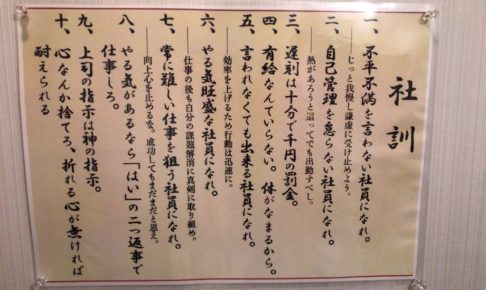 社訓
一、不平不満を言わない社員になれ。
――じっと我慢し謙虚に受け止めよう。
二、自己管理を怠らない社員になれ。
――熱があろうと這ってでも出勤すべし。
三、遅刻は十分で千円の罰金。
四、有給なんていらない。体がなまるから。
五、言われなくても出来る社員になれ。
――効率を上げるため行動は迅速に。
六、やる気旺盛な社員になれ。
――仕事の後も自分の課題解消に真剣に取り組め。
七、常に難しい仕事を狙う社員になれ。
向上心を止めるな。成功してもまだまだと思え。
八、やる気があるなら「はい」の二つ返事で
仕事しろ。
九、上司の指示は神の指示。
十、心なんか捨てろ、折れる心が無ければ
耐えられる